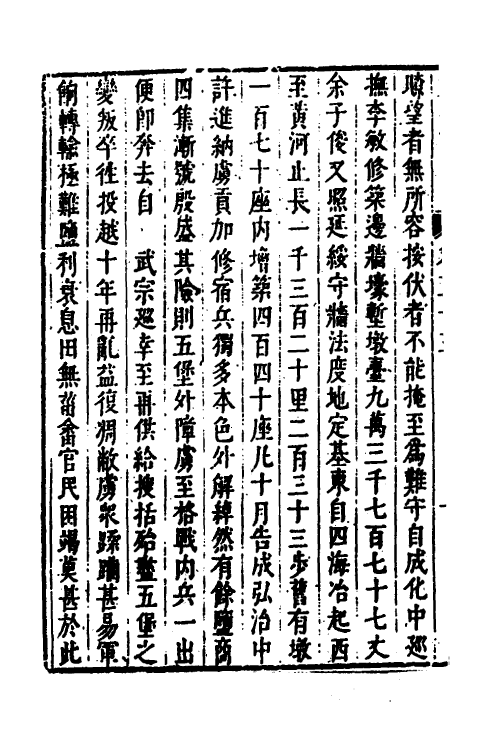 瞭望者無所容按伏者不能掩至爲難守自成化中巡
撫李敏修築邊牆壕塹墩臺九萬三千七百七十七丈
余子俊又照延綏守牆法度地定基東自四海冶起西
至黃河止長一千三百二十里二百三十三步舊有墩
一百七十座内增築四百四十座凡十月告成弘治中
許進納虜貢加修宿兵獨多本色外解綽然有餘鹽商
四集漸號殷盛其險則五堡外障虜至格戰内兵一出
便即奔去自 武宗巡幸至再供給搜括殆盡五堡之
變叛卒徃投越十年再亂益復凋敝虜衆蹂躪甚易軍
餉轉輸極難鹽利衰息田無菑畬官民困竭莫甚於此